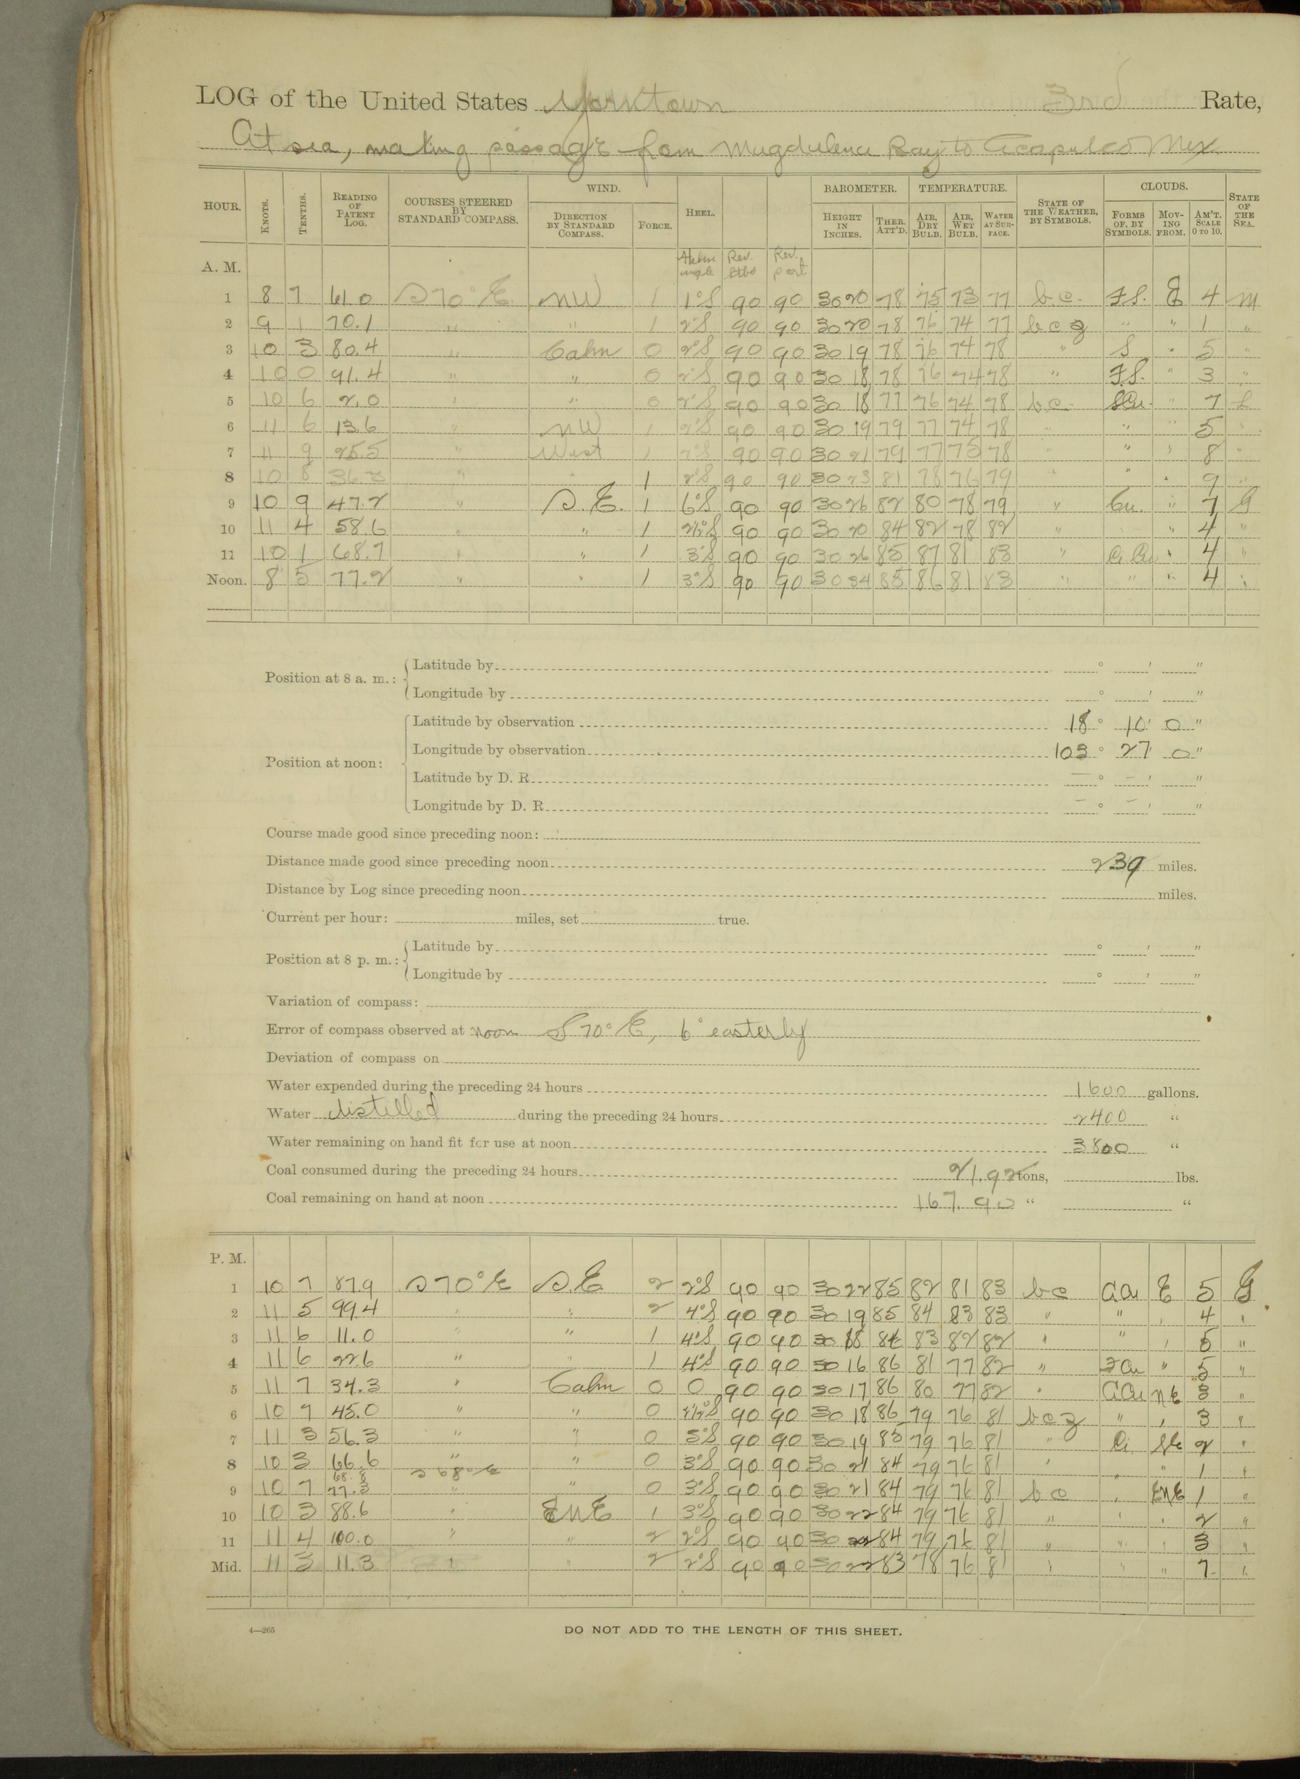 LOG of the United States Yorktown 3rd Rate,
At sea, making passage from Magdalena Bay to Acapulco Mex
HOUR. KNOTS. TENTHS. READING OF PATENT LOG. COURSES STEERED BY STANDARD COMPASS. WIND. DIRECTION BY STANDARD COMPASS. FORCE. HEEL. BAROMETER. HEIGHT IN INCHES. THER. ATT'D. TEMPERATURE. AIR, DRY BULB. AIR, WET BULB. WATER AT SURFACE. STATE OF THE WEATHER, BY SYMBOLS. CLOUDS. FORMS OF, BY SYMBOLS. MOVING FROM. AM'T. SCALE 0 TO 10. STATE OF THE SEA.
A. M. Rev. Stbd Rev. port
1 8 7 61.0 S 70° E NW 1 1°S 90 90 30 20 78 75 73 77 b.c. F.S. E 4 M
2 9 1 70.1 " " 1 2°S 90 90 30 20 78 76 74 77 b c z " " 1 "
3 10 3 80.4 " Calm 0 2°S 90 90 30 19 78 76 74 78 " S " 5 "
4 10 0 91.4 " " 0 2°S 90 90 30 18 78 76 74 78 " F.S. " 3 "
5 10 6 2.0 " " 0 2°S 90 90 30 18 77 76 74 78 b c S.Cu. " 7 S
6 11 6 13.6 " NW 1 2°S 90 90 30 19 79 77 74 78 " " " 5 "
7 11 9 25.5 " West 1 2°S 90 90 30 21 79 77 75 78 " " " 8 "
8 10 8 36.3 " " 1 2°S 90 90 30 23 81 78 76 79 " " " 9 "
9 10 9 47.2 " S.E. 1 6°S 90 90 30 26 82 80 78 79 " Cu. " 7 G
10 11 4 58.6 " " 1 2½°S 90 90 30 20 84 82 78 82 " " " 4 "
11 10 1 68.7 " " 1 3°S 90 90 30 26 85 87 81 83 " Ci Cu " 4 "
Noon. 8 5 77.2 " " 1 3°S 90 90 30 34 85 86 81 83 " " " 4 "
Position at 8 a. m.: Latitude by ° ' "
Longitude by ° ' "
Position at noon: Latitude by observation 18° 10' 0"
Longitude by observation 103° 27' 0"
Latitude by D. R. — ° — ' "
Longitude by D. R. — ° — ' "
Course made good since preceding noon:
Distance made good since preceding noon 239 miles.
Distance by Log since preceding noon miles.
Current per hour: miles, set true.
Position at 8 p. m.: Latitude by ° ' "
Longitude by ° ' "
Variation of compass:
Error of compass observed at noon S 70° E, 6° easterly
Deviation of compass on
Water expended during the preceding 24 hours 1600 gallons.
Water distilled during the preceding 24 hours 2400 "
Water remaining on hand fit for use at noon 3800 "
Coal consumed during the preceding 24 hours 21.92 tons, lbs.
Coal remaining on hand at noon 167.90 " "
P. M.
1 10 7 87.9 S 70° E S.E 2 2°S 90 90 30 22 85 82 81 83 b c Ci Cu E 5 G
2 11 5 99.4 " " 2 4°S 90 90 30 19 85 84 83 83 " " " 4 "
3 11 6 11.0 " " 1 4°S 90 90 30 18 86 83 82 82 " " " 5 "
4 11 6 22.6 " " 1 4°S 90 90 30 16 86 81 77 82 " F Cu " 5 "
5 11 7 34.3 " Calm 0 0 90 90 30 17 86 80 77 82 " Ci Cu NE 3 "
6 10 7 45.0 " " 0 90 90 30 18 86 79 76 81 b c z " " 3 "
7 11 3 56.3 " " 0 3°S 90 90 30 19 85 79 76 81 " Ci 2 "
8 10 3 66.6 " " 0 3°S 90 90 30 21 84 79 76 81 " " 1 "
68.8 S 68° E
9 10 7 77.3 " " 0 3°S 90 90 30 21 84 79 76 81 b c " ENE 1 "
10 10 3 88.6 " ENE 1 3°S 90 90 30 22 84 79 76 81 " " " 2 "
11 11 4 100.0 " " 2 2°S 90 90 30 22 84 79 76 81 " " " 3 "
Mid. 11 3 11.3 " " 2 2°S 90 90 30 22 83 78 76 81 " " " 7 "
4—265
DO NOT ADD TO THE LENGTH OF THIS SHEET.